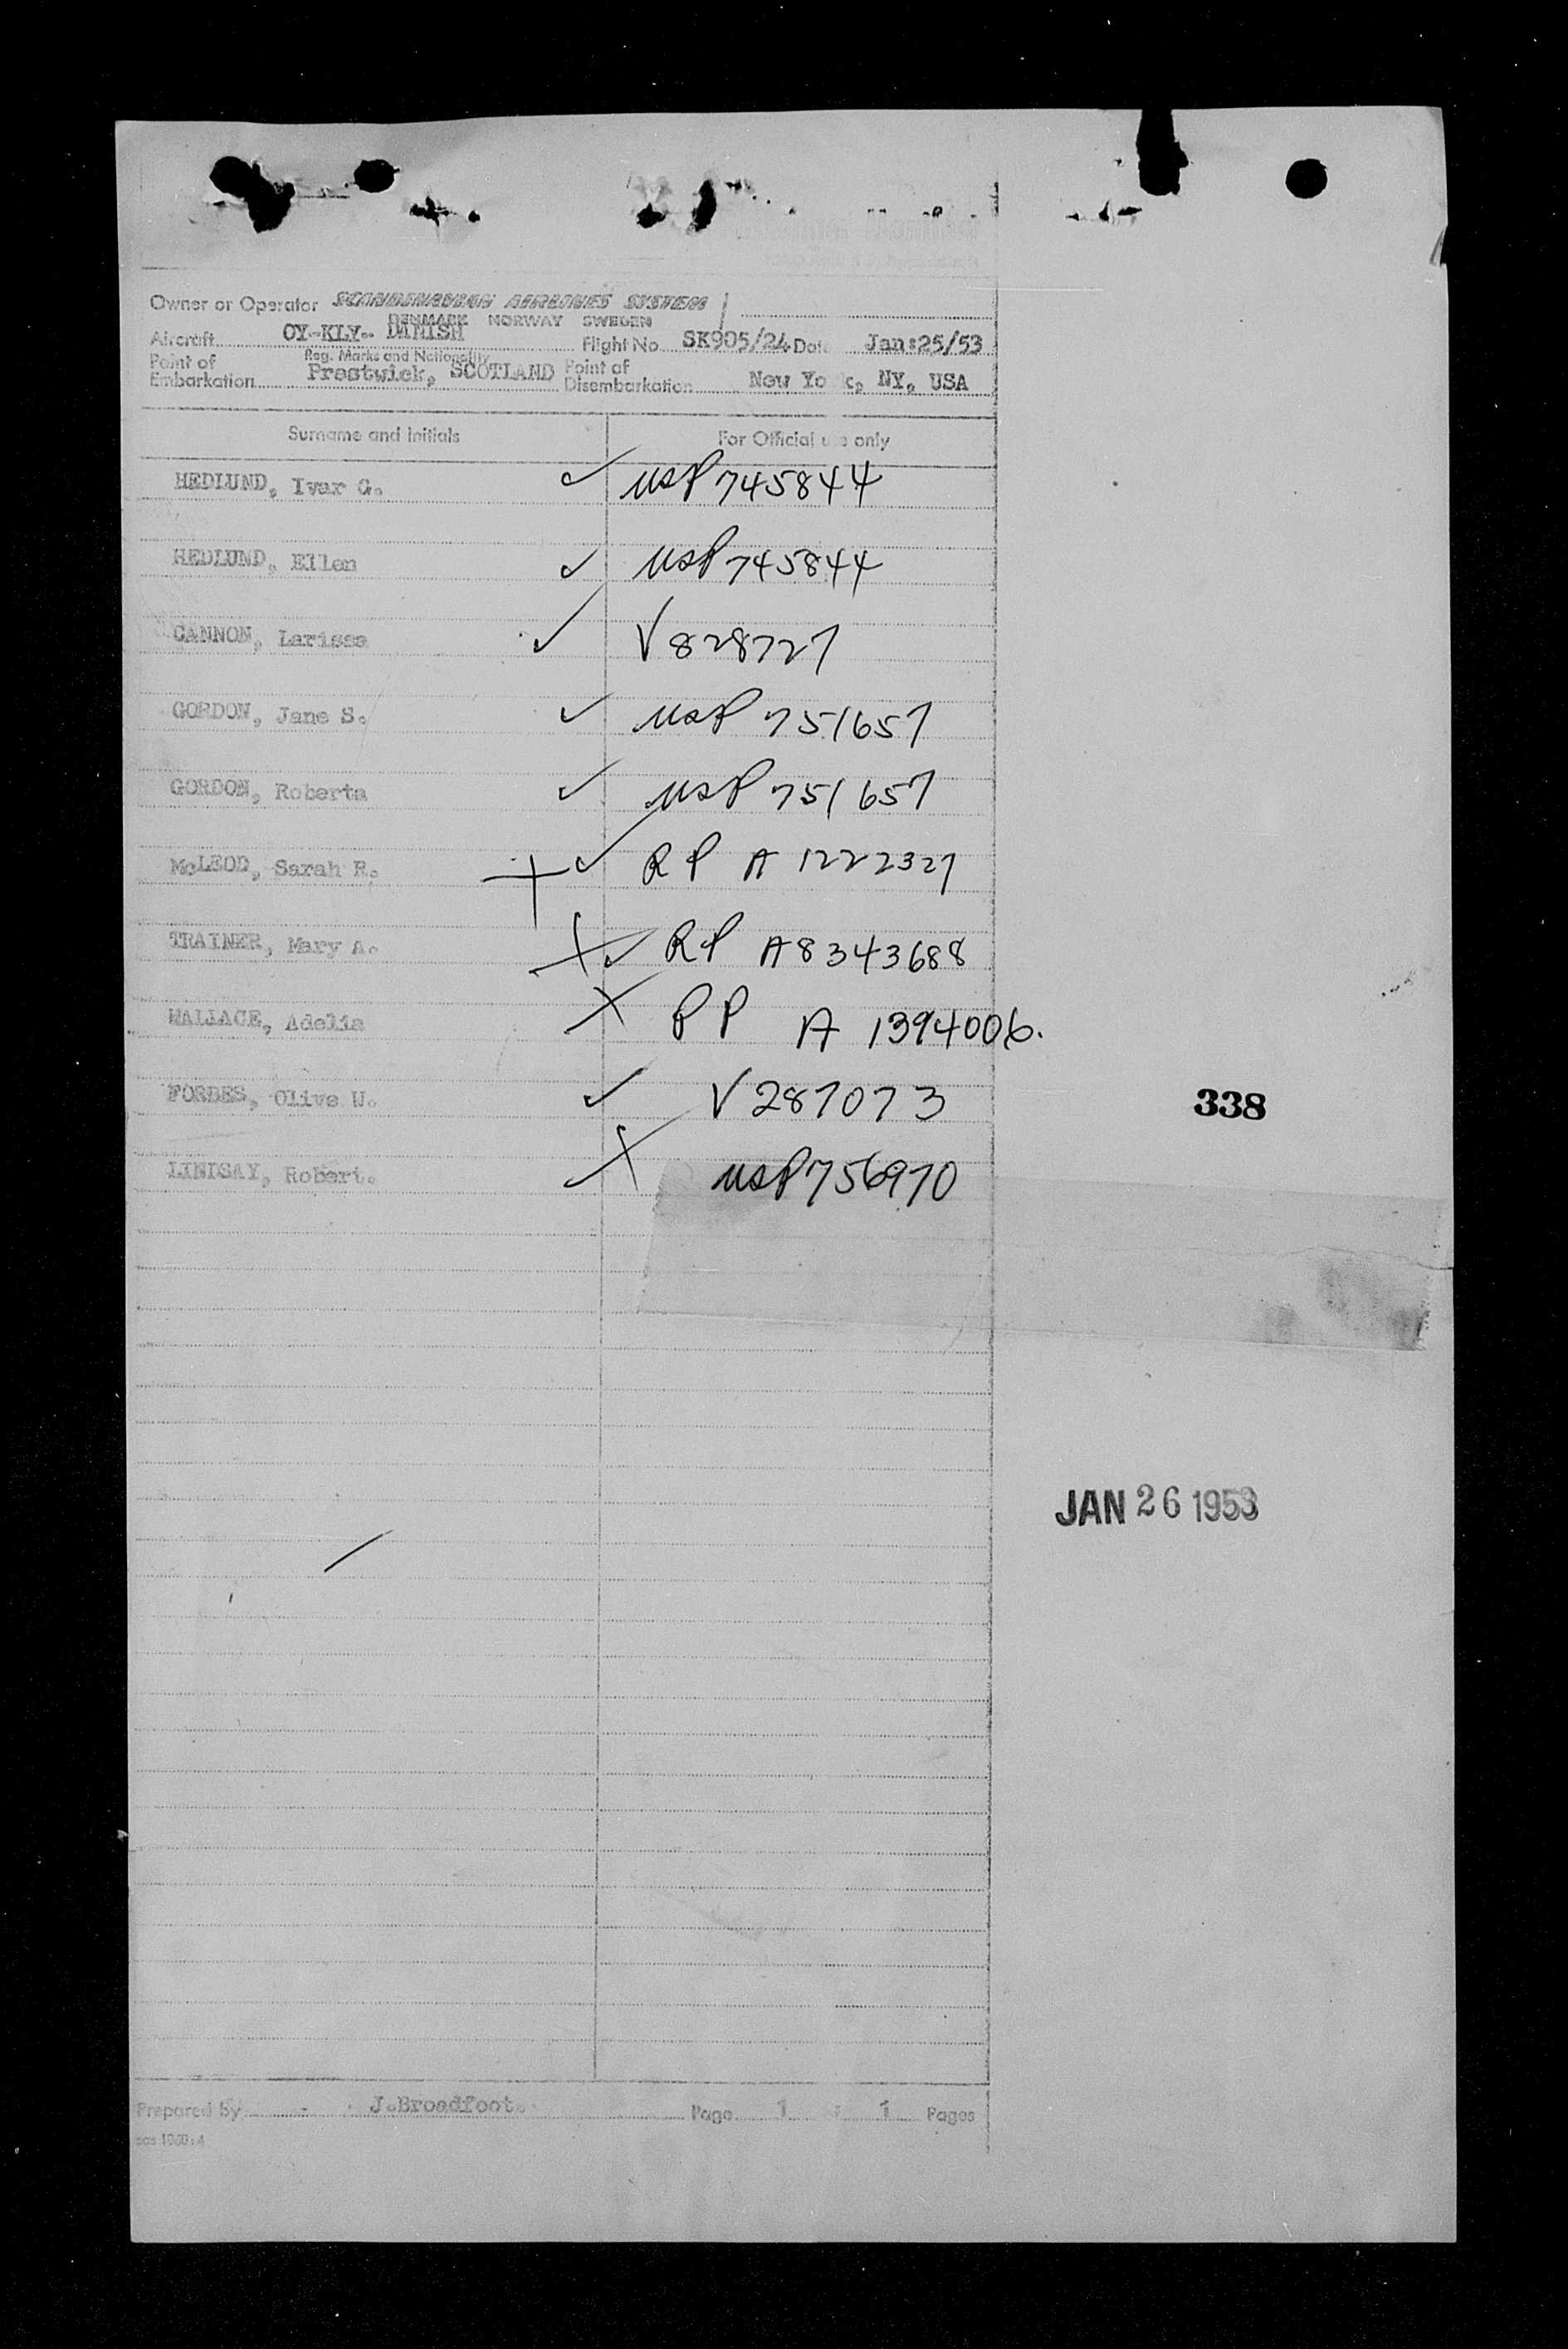 Owner or Operator SCANDINAVIAN AIRLINES SYSTEM
DENMARK NORWAY SWEDEN
Aircraft OY-KLY- DANISH Flight No SK905/24 Date Jan:25/53
Reg. Marks and Nationality
Point of Embarkation Prestwick, SCOTLAND Point of Disembarkation New York, NY, USA
Surname and Initials For Official use only
HEDLUND, Ivar G. ✓ USP 745844
HEDLUND, Ellen ✓ USP 745844
CANNON, Larissa ✓ V 828727
GORDON, Jane S. ✓ USP 751657
GORDON, Roberta ✓ USP 751657
McLEOD, Sarah R. ✓ RP A 1222327
TRAINER, Mary A. ✓ RP A8343688
WALLACE, Adelia X PP A 1394006.
FORBES, Olive W. ✓ V 287073
338
LINDSAY, Robert. ✓ USP 756970
JAN 26 1953
Prepared by J.Broadfoot. Page 1 1 Pages
sas 1060:4